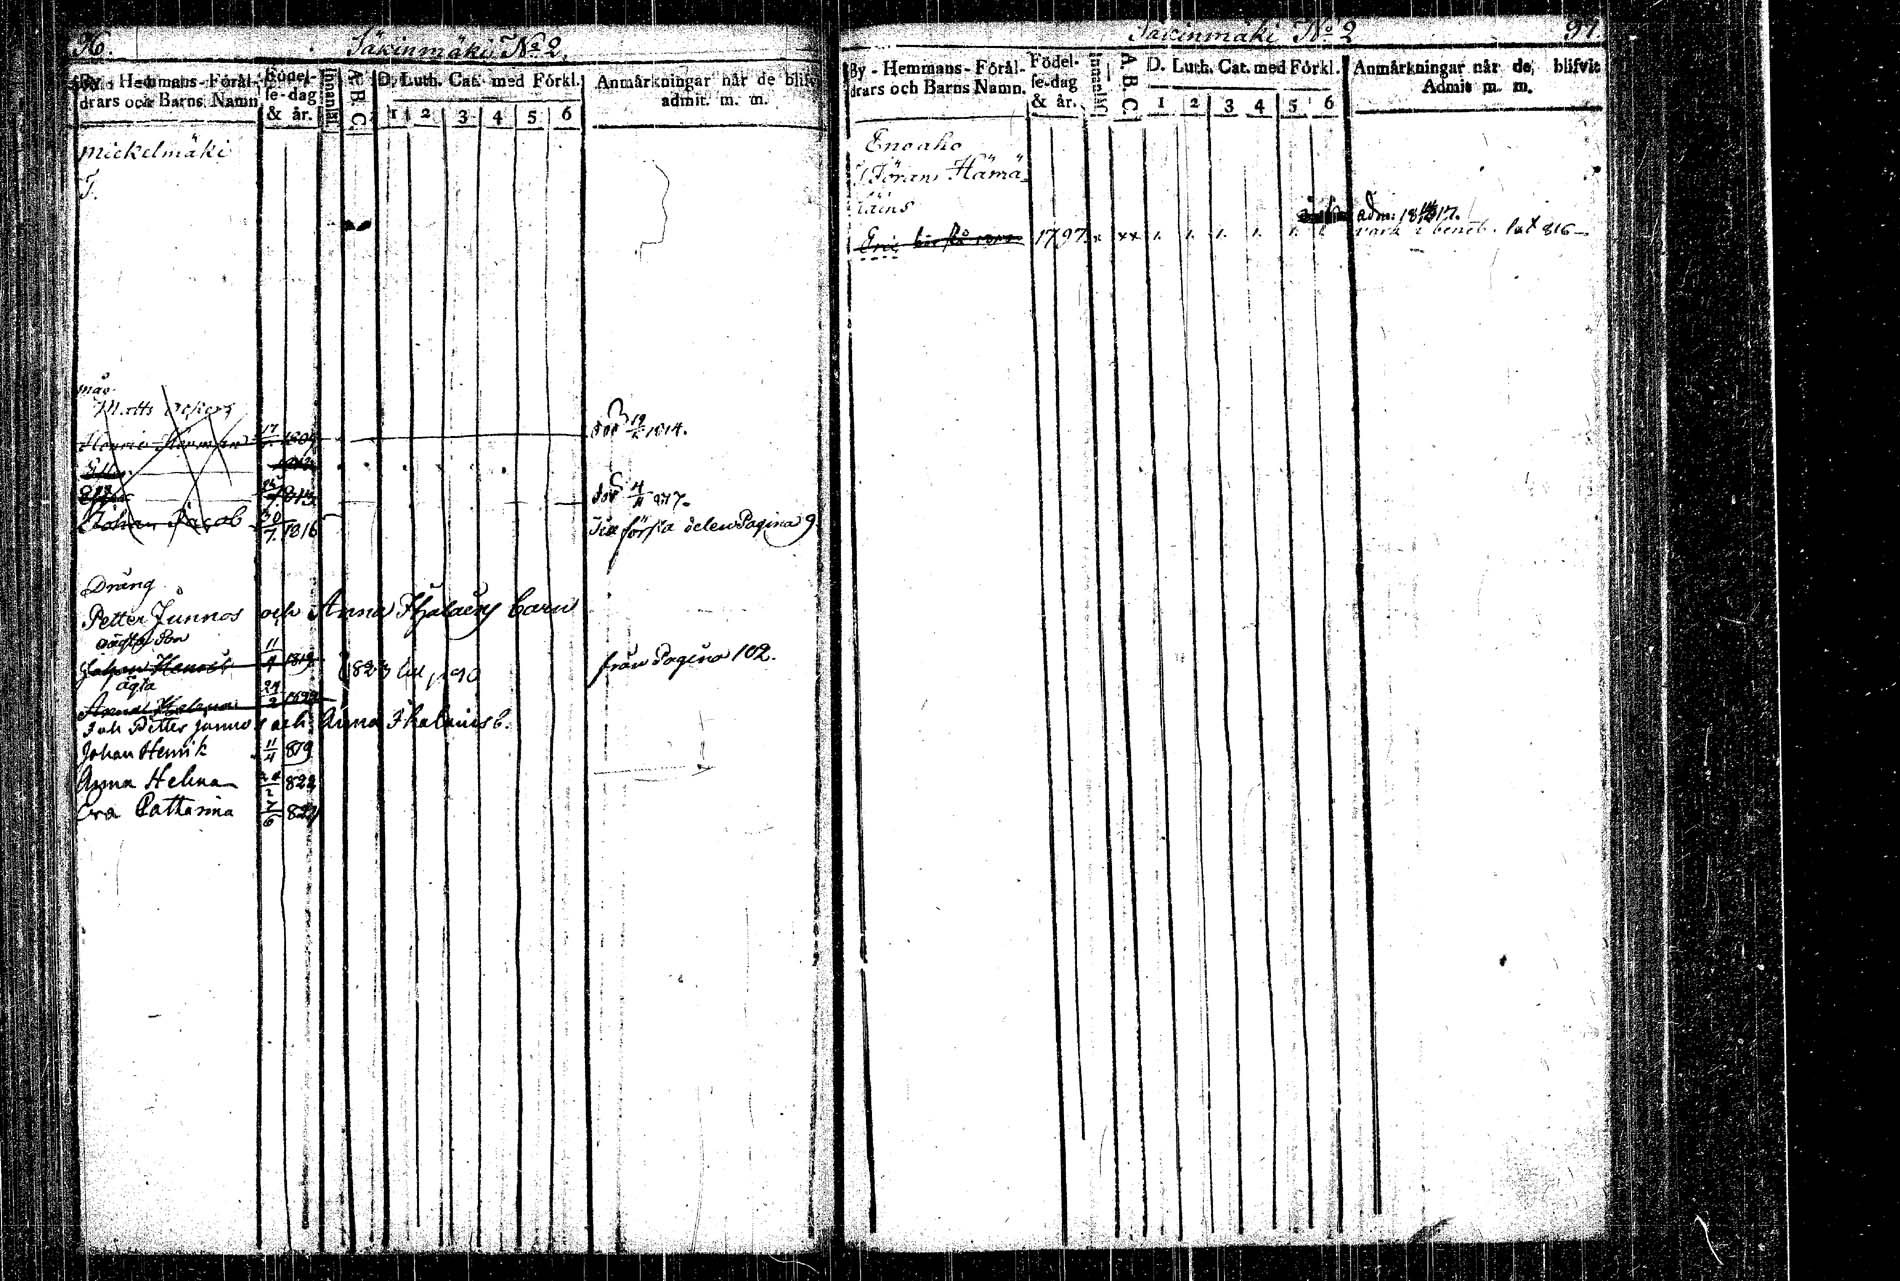 96.
Säkinmäki No 2.
By - Hemmans - Förål-
drars och Barns Namn
Födel-
se-dag
& år.
Innanläs.
A. B. C.
D. Luth. Cat. med Förkl.
1 2 3 4 5 6
Anmårkningar når de blifv
admit. m. m.
Mickelmäki
T.
Matts
Henric Herman 17 1809 död 19 1814.
813
1813 död 4 817.
Johan Jacob 30/7 1816 Till första delen Pagina 9
Dräng
Petter Junnos och Anna Ihalaisy barn
oägta Son
Johan Henrik 11/4 1819 1823 lit p 90 från Pagina 102.
ägta
Anna Helena 24/2 1822
Inh Petter Junnos och Anna Ihalainis b.
Johan Henrik 11/4 819
Anna Helena 24/2 822
Eva Catharina 7/6 824
Säkinmäki No 2
97.
By - Hemmans - Förål-
drars och Barns Namn.
Födel-
se-dag
& år.
Innanläs.
A. B. C.
D. Luth. Cat. med Förkl.
1 2 3 4 5 6
Anmårkningar når de, blifvit
Admit m. m.
Enoaho
T. Jörans Hämä-
läins
adm: 1817.
Eric 1797 x xx 1. 1. 1. 1. 1. 1. 816